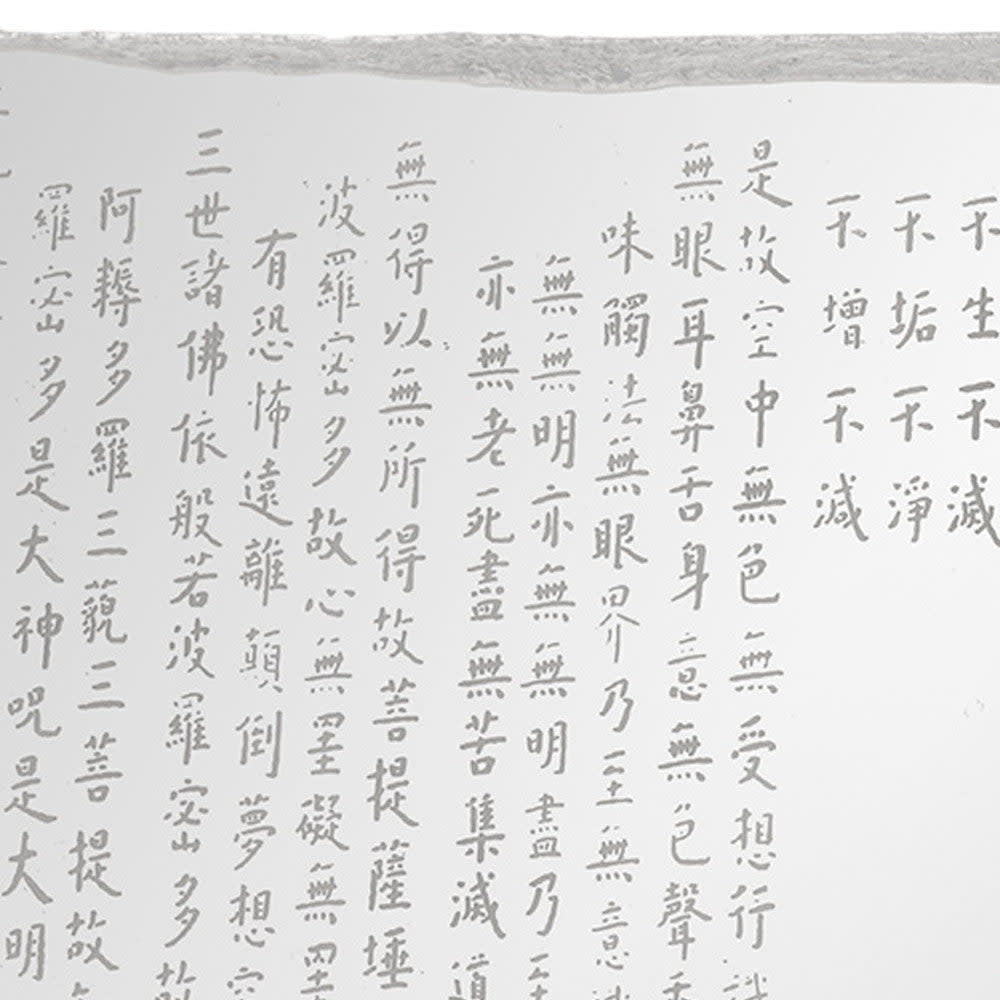 不生不滅
不垢不淨
不增不減
是故空中無色無受想行識
無眼耳鼻舌身意無色聲香
味觸法無眼界乃至無意識
無無明亦無無明盡乃至
亦無老死盡無苦集滅道
無得以無所得故菩提薩埵
波羅宓多故心無罣礙無罣
有恐怖遠離顛倒夢想究
三世諸佛依般若波羅宓多故
阿耨多羅三藐三菩提故
羅宓多是大神咒是大明